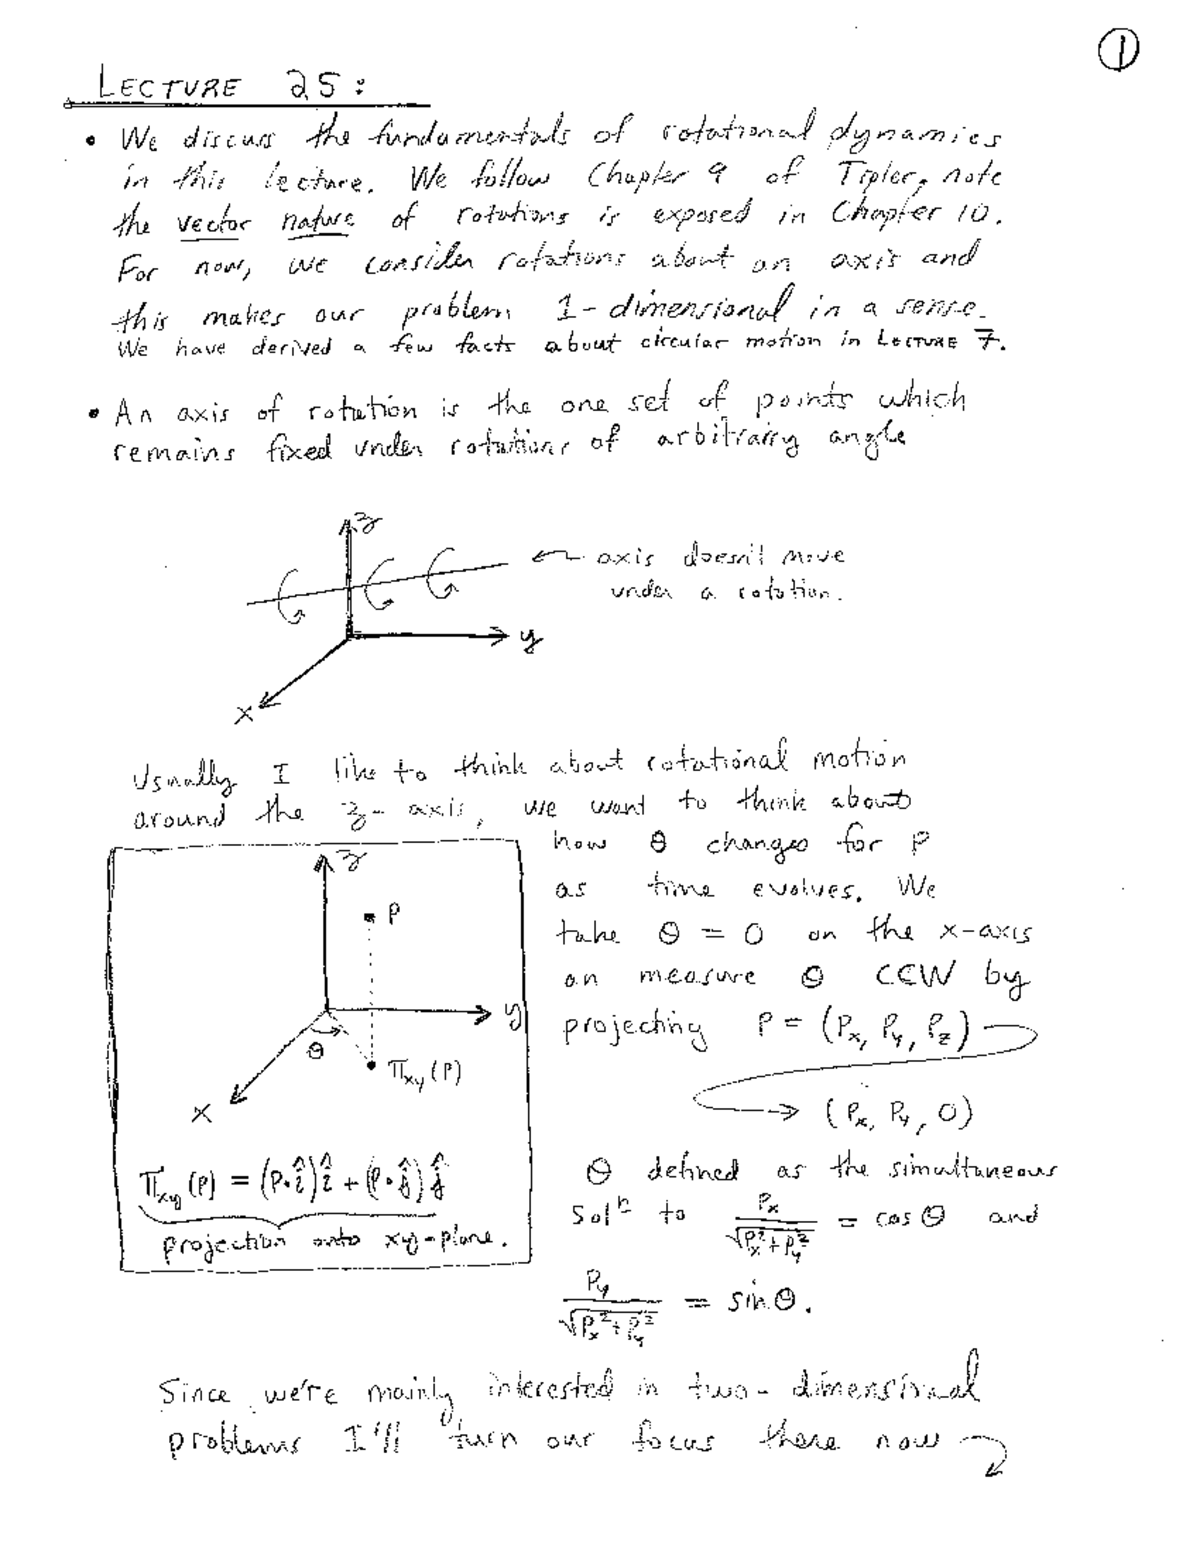 ①
LECTURE 25:
• We discuss the fundamentals of rotational dynamics
in this lecture. We follow Chapter 9 of Tipler, note
the vector nature of rotations is exposed in Chapter 10.
For now, we consider rotations about an axis and
this makes our problem 1-dimensional in a sense.
We have derived a few facts about circular motion in LECTURE 7.
• An axis of rotation is the one set of points which
remains fixed under rotations of arbitrary angle
z
axis doesn't move
under a rotation.
y
x
Usually I like to think about rotational motion
around the z-axis, we want to think about
how θ changes for P
as time evolves. We
take θ = 0 on the x-axis
an measure θ CCW by
projecting P = (Px, Py, Pz)
(Px, Py, 0)
z
P
y
θ
πxy(P)
x
πxy(P) = (P•î)î + (P•ĵ)ĵ
projection onto xy-plane.
θ defined as the simultaneous
Solⁿ to Px/√(Px²+Py²) = cos θ and
Py/√(Px²+Py²) = sin θ.
Since we're mainly interested in two-dimensional
problems I'll turn our focus there now